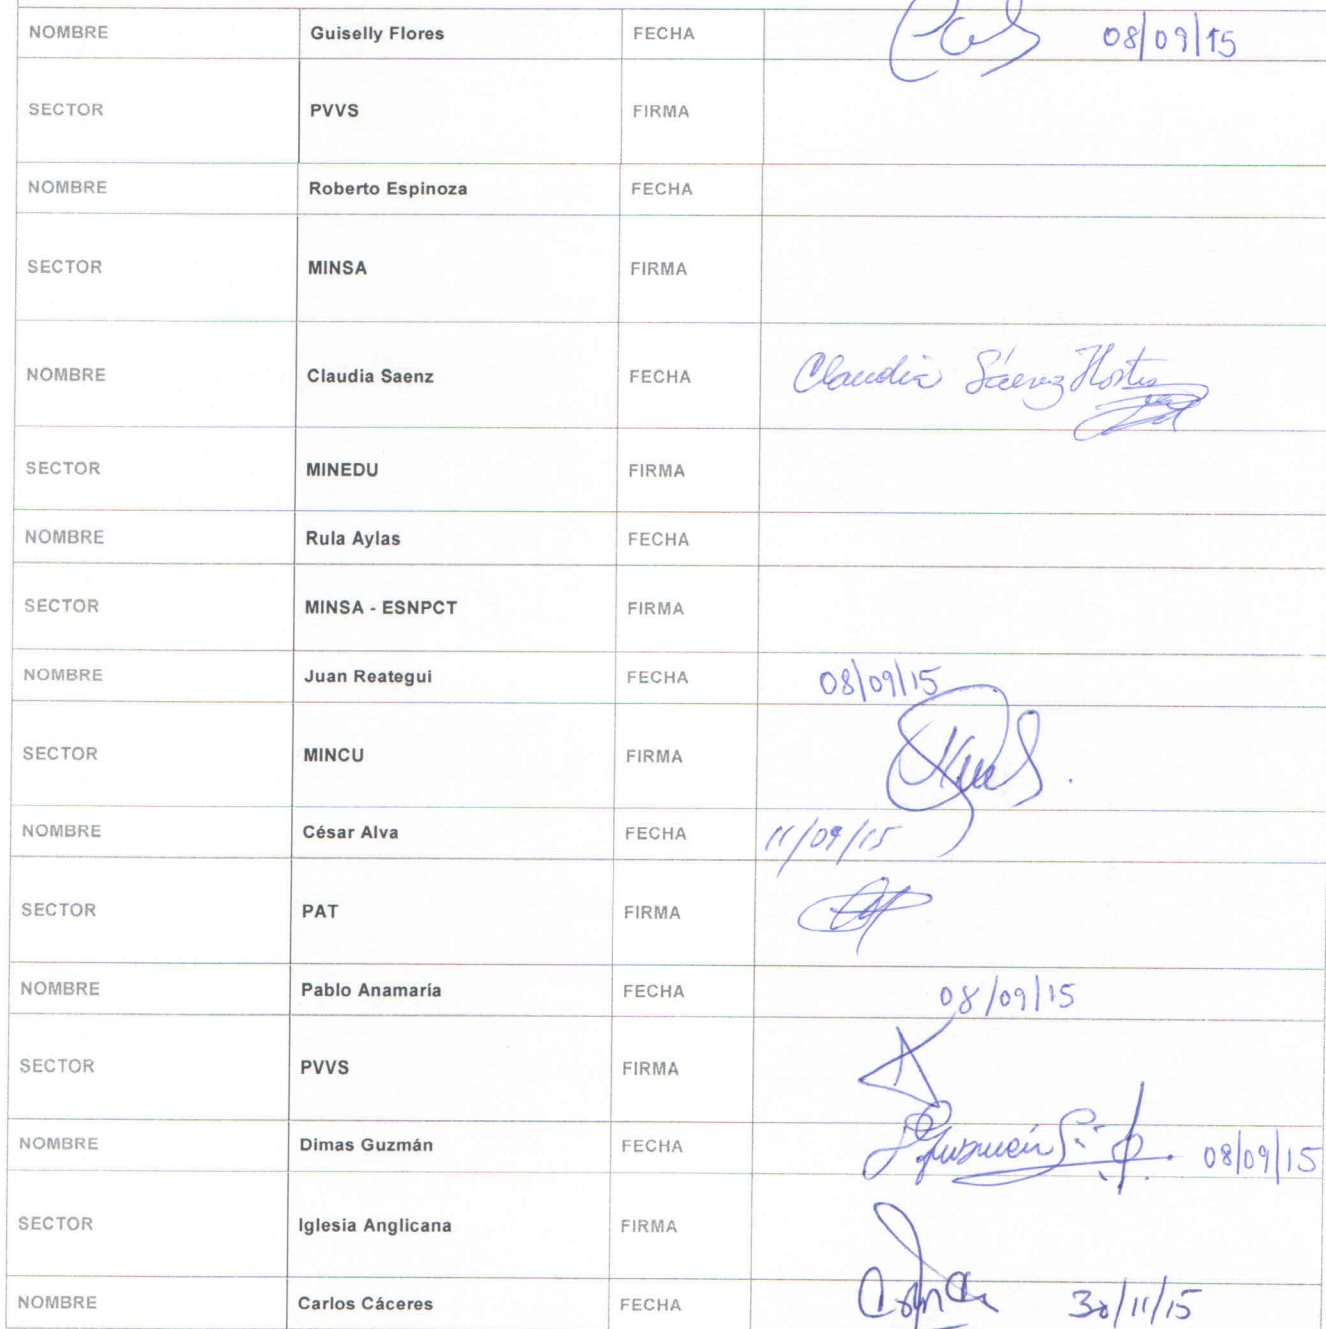 NOMBRE Guiselly Flores FECHA 08/09/15
SECTOR PVVS FIRMA
NOMBRE Roberto Espinoza FECHA
SECTOR MINSA FIRMA
NOMBRE Claudia Saenz FECHA Claudia Sáenz
SECTOR MINEDU FIRMA
NOMBRE Rula Aylas FECHA
SECTOR MINSA - ESNPCT FIRMA
NOMBRE Juan Reategui FECHA 08/09/15
SECTOR MINCU FIRMA
NOMBRE César Alva FECHA 11/09/15
SECTOR PAT FIRMA
NOMBRE Pablo Anamaría FECHA 08/09/15
SECTOR PVVS FIRMA
NOMBRE Dimas Guzmán FECHA 08/09/15
SECTOR Iglesia Anglicana FIRMA
NOMBRE Carlos Cáceres FECHA 30/11/15